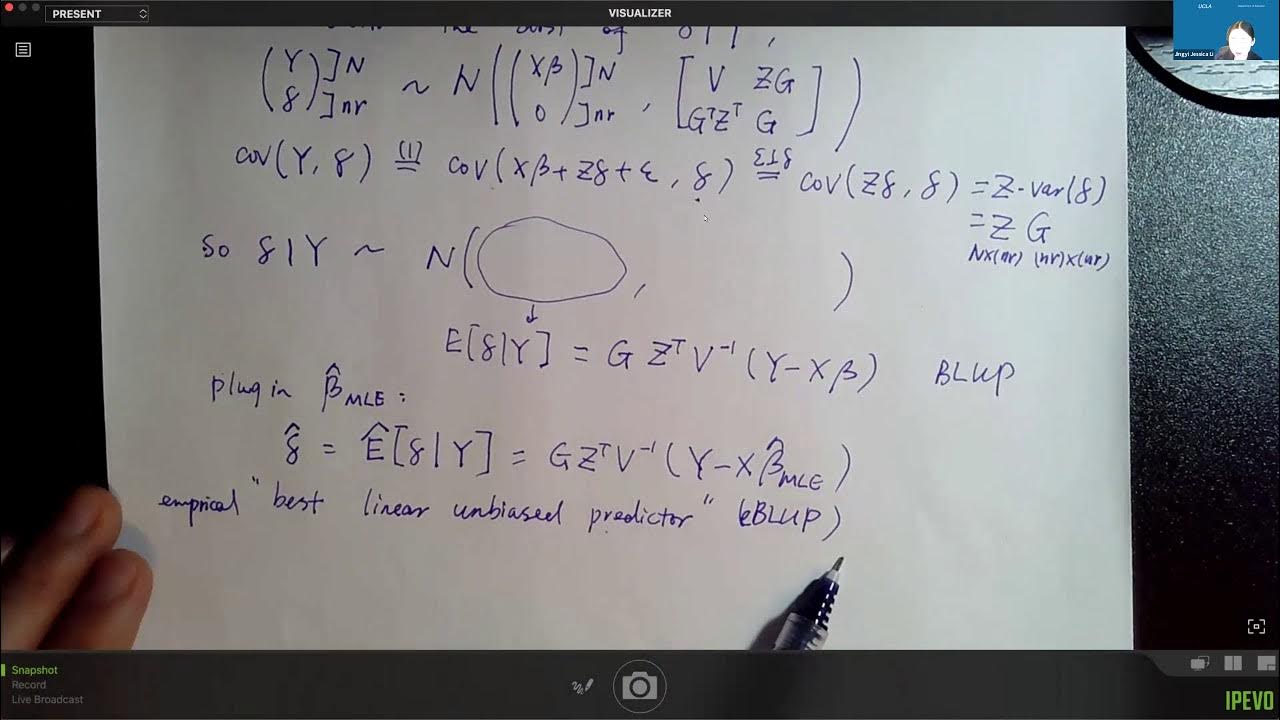 PRESENT
VISUALIZER
UCLA
Jingyi Jessica Li
the of
(Y δ) ]N ]nr ~ N( (Xβ 0) ]N ]nr , [V ZG GᵀZᵀ G] )
cov(Y, δ) (1)= cov(Xβ + Zδ + ε, δ) ε⊥δ= cov(Zδ, δ) = Z·var(δ)
= Z G
N×(nr) (nr)×(nr)
So δ|Y ~ N( , )
↓
E[δ|Y] = G Zᵀ V⁻¹ (Y − Xβ) BLUP
plug in β̂MLE :
δ̂ = Ê[δ|Y] = GZᵀV⁻¹(Y − Xβ̂MLE)
emprical "best linear unbiased predictor" (eBLUP)
Snapshot
Record
Live Broadcast
IPEVO